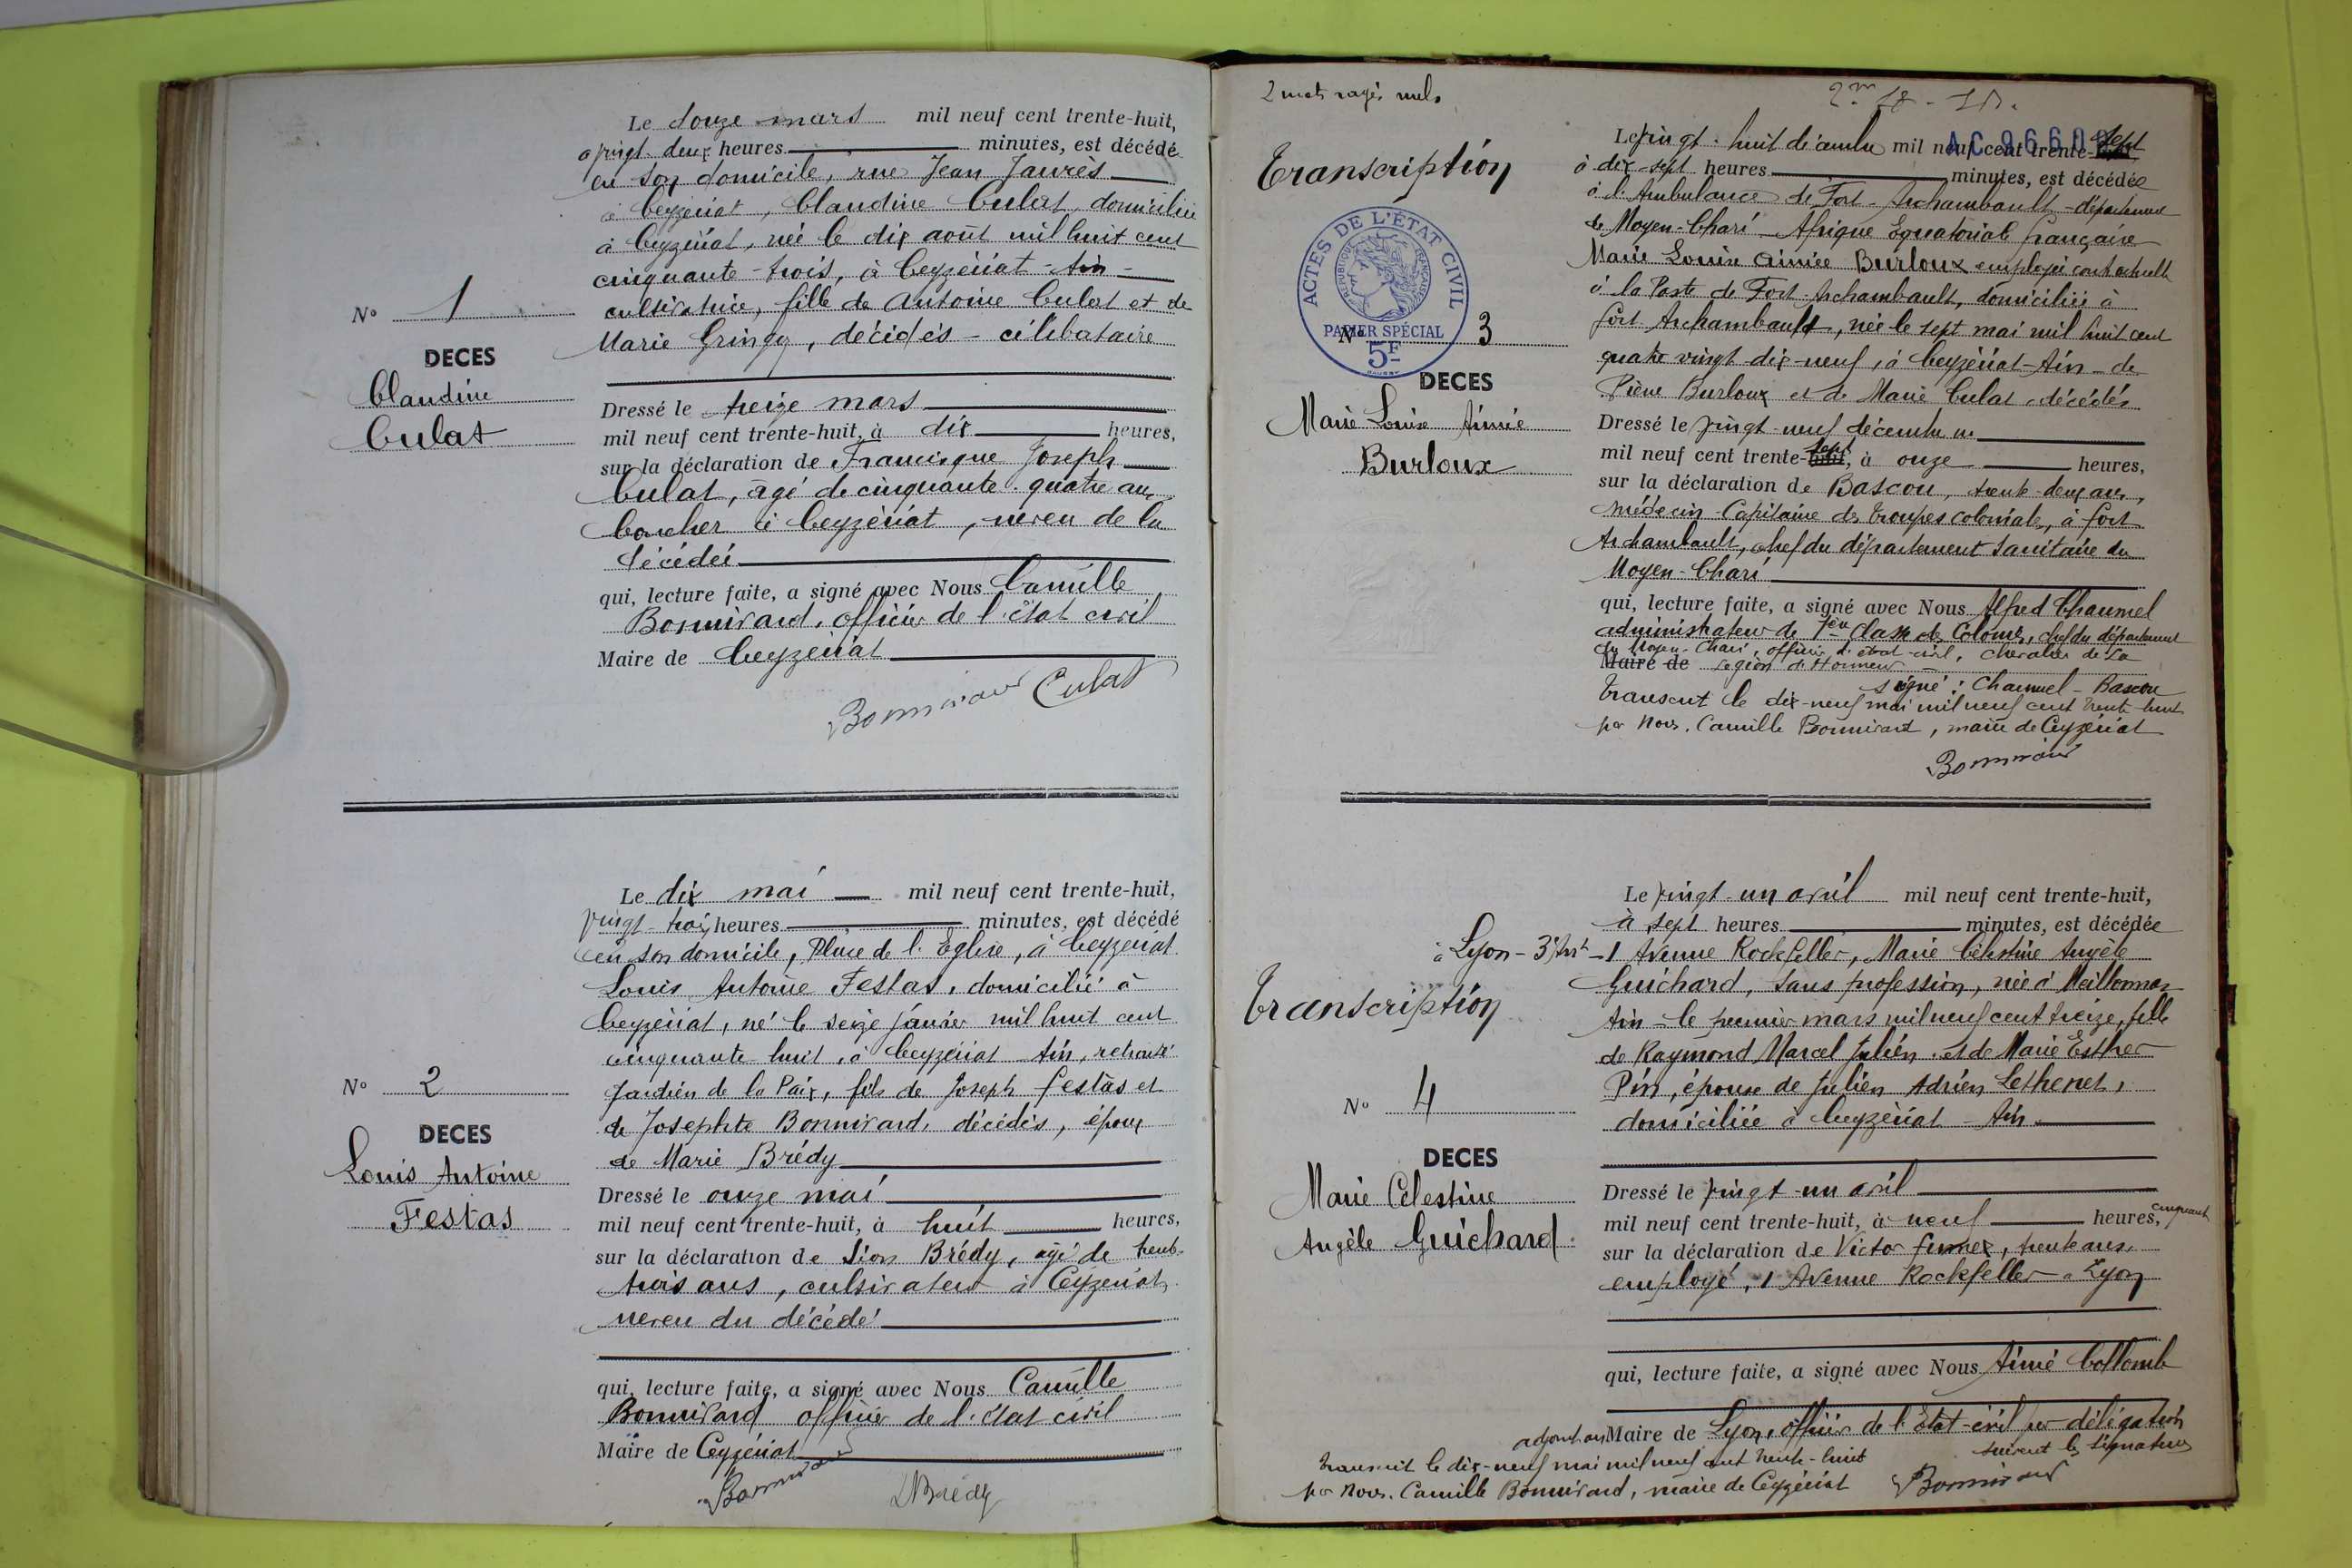 Le douze mars mil neuf cent trente-huit,
à vingt-deux heures minutes, est décédé
en son domicile, rue Jean Jaurès
à Ceyzériat, Claudine Culat, domiciliée
à Ceyzériat, née le dix août mil huit cent
cinquante-trois, à Ceyzériat - Ain -
cultivatrice, fille de Antoine Culat et de
Marie Gringoz, décédés - célibataire
N° 1
DECES
Claudine
Culat
Dressé le treize mars
mil neuf cent trente-huit, à dix heures,
sur la déclaration de Francisque Joseph
Culat, âgé de cinquante-quatre ans
boucher à Ceyzériat, neveu de la
décédée
qui, lecture faite, a signé avec Nous Camille
Bonnivard, officier de l'état civil
Maire de Ceyzériat
Bonnivard Culat
Le dix mai mil neuf cent trente-huit,
vingt-trois heures minutes, est décédé
en son domicile, Place de l'Eglise, à Ceyzériat
Louis Antoine Festas, domicilié à
Ceyzériat, né le seize janvier mil huit cent
cinquante-huit, à Ceyzériat - Ain, retraité
gardien de la Paix, fils de Joseph Festas et
de Josephte Bonnivard, décédés, époux
de Marie Brédy
N° 2
DECES
Louis Antoine
Festas
Dressé le onze mai
mil neuf cent trente-huit, à huit heures,
sur la déclaration de Léon Brédy, âgé de trente-
trois ans, cultivateur à Ceyzériat,
neveu du décédé
qui, lecture faite, a signé avec Nous Camille
Bonnivard officier de l'état civil
Maire de Ceyzériat
Bonnivard LBrédy
2 mots rayés nuls
Transcription
ACTES DE L'ÉTAT CIVIL
RÉPUBLIQUE FRANÇAISE
PAPIER SPÉCIAL
5F
N° 3
DECES
Marie Louise Aimée
Burloux
Le vingt-huit décembre mil neuf cent trente-sept
à dix-sept heures minutes, est décédée
à l'Ambulance de Fort-Archambault - département
de Moyen-Chari - Afrique Equatoriale française
Marie Louise Aimée Burloux employée contractuelle
à la Poste de Fort-Archambault, domiciliée à
fort Archambault, née le sept mai mil huit cent
quatre vingt-dix-neuf, à Ceyzériat - Ain - de
Pierre Burloux et de Marie Culat - décédés
Dressé le vingt-neuf décembre
mil neuf cent trente-sept, à onze heures,
sur la déclaration de Bascou, trente-deux ans,
médecin-Capitaine des troupes coloniales, à fort
Archambault, chef du département sanitaire du
Moyen-Chari
qui, lecture faite, a signé avec Nous Alfred Chaumel
administrateur de 1ère classe des Colonies, chef du département
du Moyen-Chari, officier d'état-civil, chevalier de la
Maire de Légion d'Honneur
signé : Chaumel - Bascou
Transcrit le dix-neuf mai mil neuf cent trente-huit
par Nous, Camille Bonnivard, maire de Ceyzériat
Bonnivard
Le vingt-un avril mil neuf cent trente-huit,
à sept heures minutes, est décédée
à Lyon - 3e Arrt - 1 Avenue Rockfeller, Marie Célestine Angèle
Guichard, sans profession, née à Meillonnas
Ain - le premier mars mil neuf cent treize, fille
de Raymond Marcel Julien et de Marie Esther
Pin, épouse de Julien Adrien Lethenet,
domiciliée à Ceyzériat - Ain
Transcription
N° 4
DECES
Marie Célestine
Angèle Guichard
Dressé le vingt-un avril
mil neuf cent trente-huit, à neuf heures, cinquante
sur la déclaration de Victor trente ans,
employé, 1 Avenue Rockfeller à Lyon
qui, lecture faite, a signé avec Nous Aimé Collomb
adjoint au Maire de Lyon, officier de l'Etat-civil par délégation
suivent les signatures
Transcrit le dix-neuf mai mil neuf cent trente-huit
par Nous, Camille Bonnivard, maire de Ceyzériat Bonnivard